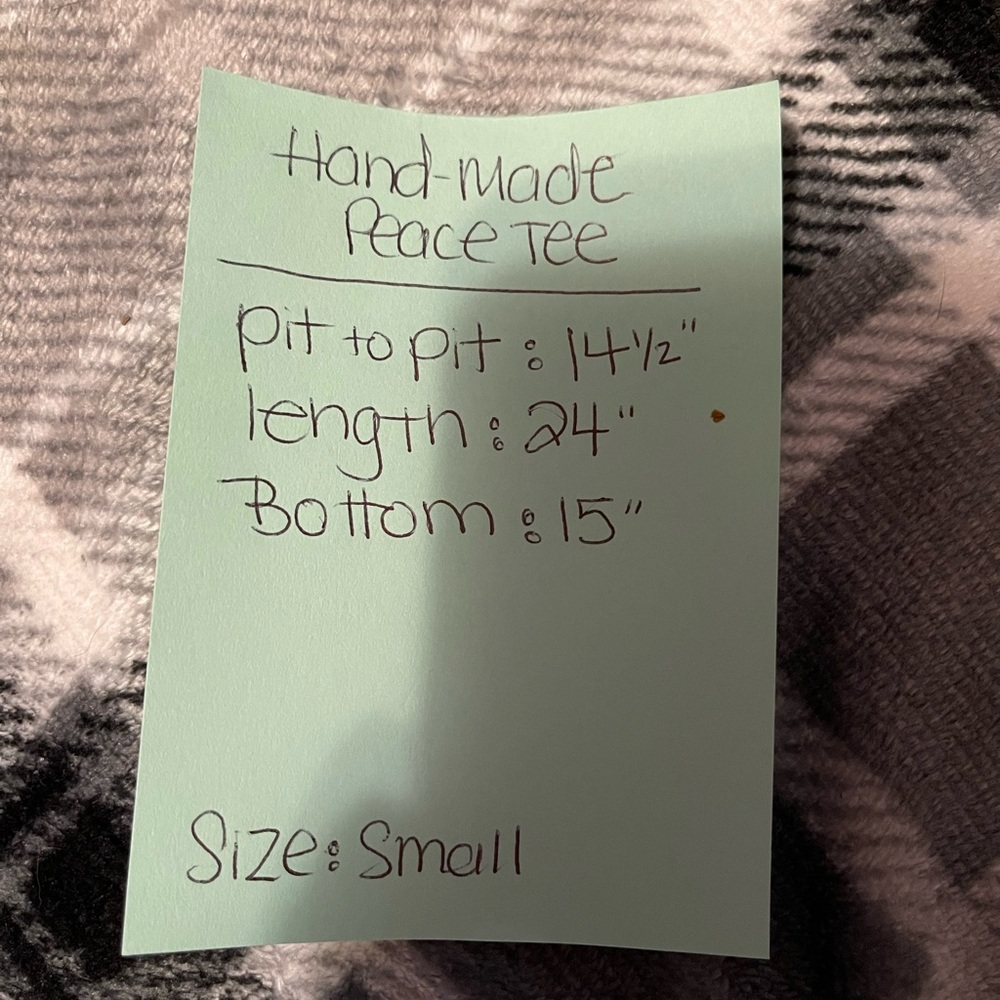 Hand-made
Peace Tee
Pit to pit: 14 1/2"
length: 24"
Bottom: 15"
Size: Small